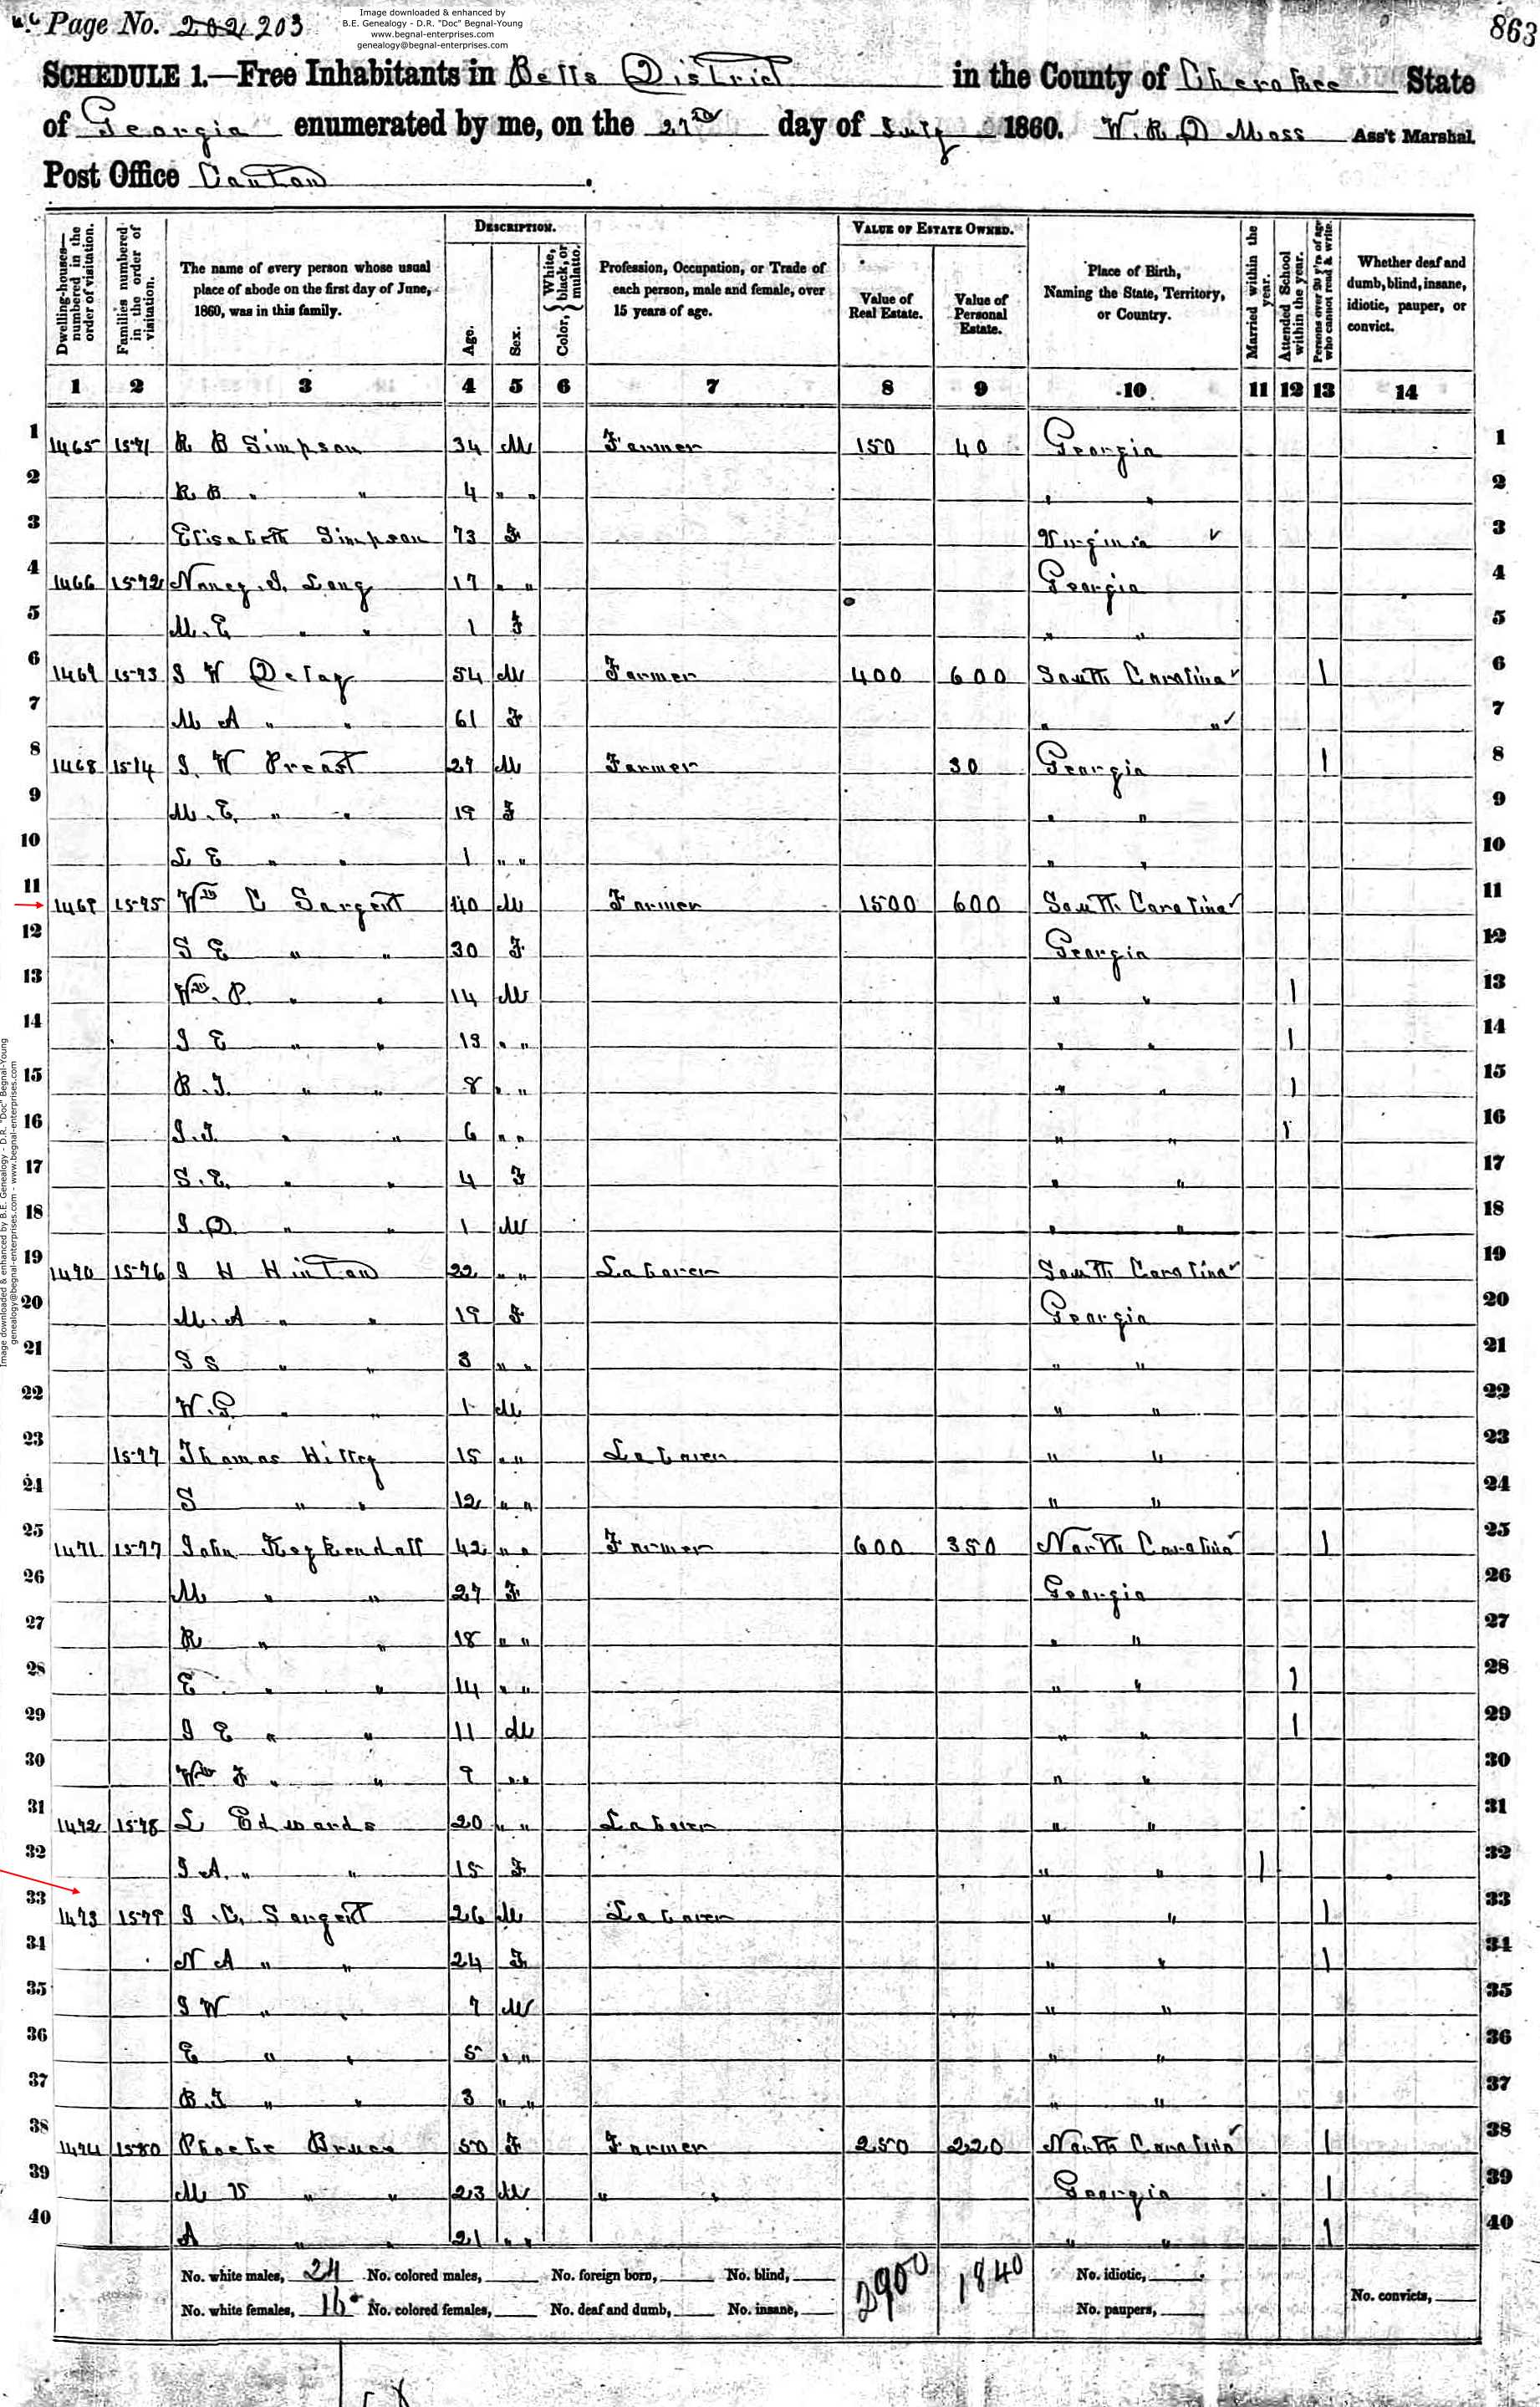 Image downloaded & enhanced by
B.E. Genealogy - D.R. "Doc" Begnal-Young
www.begnal-enterprises.com
genealogy@begnal-enterprises.com
Page No. 202 203
863
SCHEDULE 1.—Free Inhabitants in Bells District in the County of Cherokee State
of Georgia enumerated by me, on the 27th day of July 1860. W. R. D Moss Ass't Marshal.
Post Office Canton.
Dwelling-houses—numbered in the order of visitation.
Families numbered in the order of visitation.
The name of every person whose usual place of abode on the first day of June, 1860, was in this family.
DESCRIPTION.
Age.
Sex.
Color, { White, black, or mulatto.
Profession, Occupation, or Trade of each person, male and female, over 15 years of age.
VALUE OF ESTATE OWNED.
Value of Real Estate.
Value of Personal Estate.
Place of Birth, Naming the State, Territory, or Country.
Married within the year.
Attended School within the year.
Persons over 20 y'rs of age who cannot read & write.
Whether deaf and dumb, blind, insane, idiotic, pauper, or convict.
1 2 3 4 5 6 7 8 9 10 11 12 13 14
1 1465 1571 R B Simpson 34 M Farmer 150 40 Georgia 1
2 R B " " 4 " " " " 2
3 Elisabeth Simpson 73 F Virginia ✓ 3
4 1466 1572 Nancy J. Long 17 " " Georgia 4
5 M. E " " 1 F " " 5
6 1467 1573 J W Delay 54 M Farmer 400 600 South Carolina ✓ 1 6
7 M A " " 61 F " " ✓ 7
8 1468 1574 J. W Preast 27 M Farmer 30 Georgia 1 8
9 M. E. " " 19 F " " 9
10 L E " " 1 " " " " 10
11 1469 1575 Wm C Sargent 40 M Farmer 1500 600 South Carolina ✓ 11
12 S E " " 30 F Georgia 12
13 Wm. P. " " 14 M " " 1 13
14 J E " " 13 " " " " 1 14
15 B. J. " " 8 " " " " 1 15
16 J. J. " " 6 " " " " 1 16
17 S. E. " " 4 F " " 17
18 J. D. " " 1 M " " 18
19 1470 1576 J H Hinton 22 " " Laborer South Carolina ✓ 19
20 M. A " " 19 F Georgia 20
21 S S " " 3 " " " " 21
22 W. G. " " 1 M " " 22
23 1577 Thomas Hilley 15 " " Laborer " " 23
24 S " " 12 " " " " 24
25 1471 1577 John Keykendall 42 " " Farmer 600 350 North Carolina ✓ 1 25
26 M " " 27 F Georgia 26
27 R " " 18 " " " " 27
28 E " " 14 " " " " 1 28
29 J E " " 11 M " " 1 29
30 Wm F " " 9 " " " " 30
31 1472 1578 L Edwards 20 " " Laborer " " 31
32 J A. " " 15 F " " 1 32
33 1473 1579 J. C. Sargent 26 M Laborer " " 1 33
34 N A " " 24 F " " 1 34
35 J W " " 7 M " " 35
36 E " " 5 " " " " 36
37 B. J " " 3 " " " " 37
38 1474 1580 Phoebe Bruce 50 F Farmer 250 220 North Carolina ✓ 1 38
39 M V " " 23 M " " Georgia 1 39
40 A " " 21 " " " " 1 40
No. white males, 24 No. colored males, No. foreign born, No. blind, 2900 1840 No. idiotic,
No. white females, 16 No. colored females, No. deaf and dumb, No. insane, No. paupers, No. convicts,
Image downloaded & enhanced by B.E. Genealogy - D.R. "Doc" Begnal-Young
genealogy@begnal-enterprises.com - www.begnal-enterprises.com